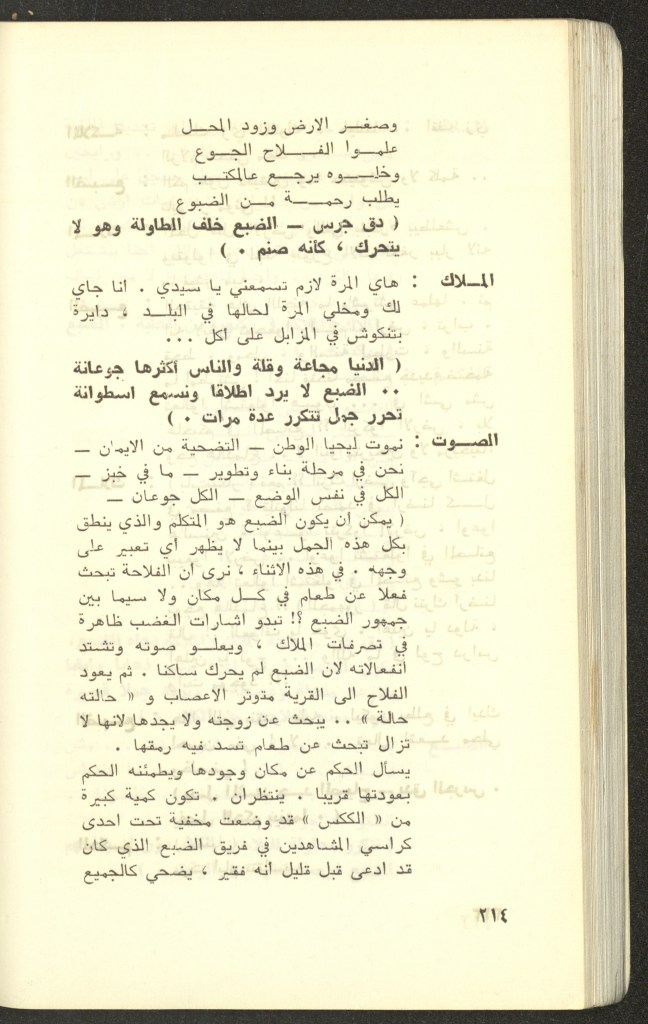 وصغـــر الارض وزود المحـــل
علمـــوا الفـــلاح الجـــوع
وخلـــوه يرجـــع عالمكتـــب
يطلب رحمـــة مـــن الضبوع
( دق جرس ــ الضبع خلف الطاولة وهو لا
يتحرك ، كأنه صنم . )
المـــلاك : هاي المرة لازم تسمعني يا سيدي . انا جاي
لك ومخلي المرة لحالها في البلـــد ، دايرة
بتنكوش في المزابل على اكل ...
( الدنيا مجاعة وقلة والناس أكثرها جوعانة
.. الضبع لا يرد اطلاقا ونسمع اسطوانة
تحرر جمل تتكرر عدة مرات . )
الصـــوت : نموت ليحيا الوطن ــ التضحية من الايمان ــ
نحن في مرحلة بناء وتطوير ــ ما في خبز ــ
الكل في نفس الوضع ــ الكل جوعان ــ
( يمكن ان يكون الضبع هو المتكلم والذي ينطق
بكل هذه الجمل بينما لا يظهر اي تعبير على
وجهه . في هذه الاثناء ، نرى ان الفلاحة تبحث
فعلا عن طعام في كـــل مكان ولا سيما بين
جمهور الضبع ؟! تبدو اشارات الغضب ظاهرة
في تصرفات الملاك ، ويعلـــو صوته وتشتد
انفعالاته لان الضبع لم يحرك ساكنا . ثم يعود
الفلاح الى القرية متوتر الاعصاب و « حالته
حالة » .. يبحث عن زوجته ولا يجدها لانها لا
تزال تبحث عن طعام تسد فيه رمقها .
يسأل الحكم عن مكان وجودها ويطمئنه الحكم
بعودتها قريبا . ينتظران . تكون كمية كبيرة
من « الككس » قد وضعت مخفية تحت احدى
كراسي المشاهدين في فريق الضبع الذي كان
قد ادعى قبل قليل انه فقير ، يضحي كالجميع
٢١٤